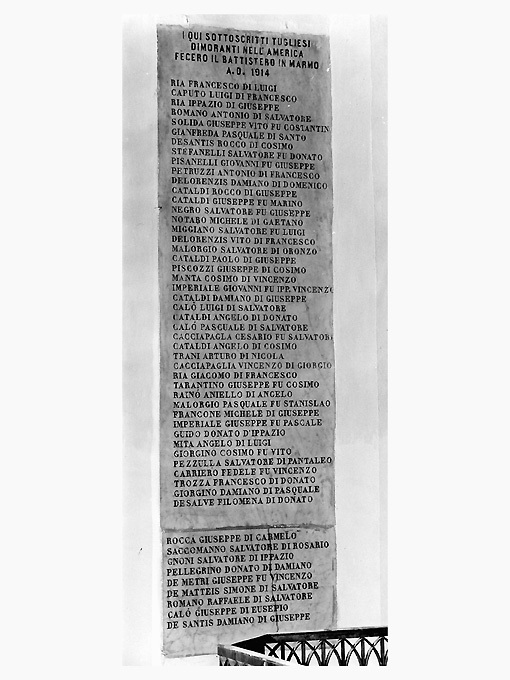 I QUI SOTTOSCRITTI TUGLIESI
DIMORANTI NELL'AMERICA
FECERO IL BATTISTERO IN MARMO
A.D. 1914
RIA FRANCESCO DI LUIGI
CAPUTO LUIGI DI FRANCESCO
RIA IPPAZIO DI GIUSEPPE
ROMANO ANTONIO DI SALVATORE
SOLIDA GIUSEPPE VITO FU COSTANTIN
GIANFREDA PASQUALE DI SANTO
DESANTIS ROCCO DI COSIMO
STEFANELLI SALVATORE FU DONATO
PISANELLI GIOVANNI FU GIUSEPPE
PETRUZZI ANTONIO DI FRANCESCO
DELORENZIS DAMIANO DI DOMENICO
CATALDI ROCCO DI GIUSEPPE
CATALDI GIUSEPPE FU MARINO
NEGRO SALVATORE FU GIUSEPPE
NOTARO MICHELE DI GAETANO
MIGGIANO SALVATORE FU LUIGI
DELORENZIS VITO DI FRANCESCO
MALORGIO SALVATORE DI ORONZO
CATALDI PAOLO DI GIUSEPPE
PISCOZZI GIUSEPPE DI COSIMO
MANTA COSIMO DI VINCENZO
IMPERIALE GIOVANNI FU IPP. VINCENZO
CATALDI DAMIANO DI GIUSEPPE
CALÒ LUIGI DI SALVATORE
CATALDI ANGELO DI DONATO
CALÒ PASCUALE DI SALVATORE
CACCIAPAGLA CESARIO FU SALVATORE
CATALDI ANGELO DI COSIMO
TRANI ARTURO DI NICOLA
CACCIAPAGLIA VINCENZO DI GIORGIO
RIA GIACOMO DI FRANCESCO
TARANTINO GIUSEPPE FU COSIMO
RAINÒ ANIELLO DI ANGELO
MALORGIO PASQUALE FU STANISLAO
FRANCONE MICHELE DI GIUSEPPE
IMPERIALE GIUSEPPE FU PASCALE
GUIDO DONATO D'IPPAZIO
MITA ANGELO DI LUIGI
GIORGINO COSIMO FU VITO
PEZZULLA SALVATORE DI PANTALEO
CARRIERO FEDELE FU VINCENZO
TROZZA FRANCESCO DI DONATO
GIORGINO DAMIANO DI PASQUALE
DESALVE FILOMENA DI DONATO
ROCCA GIUSEPPE DI CARMELO
SACCOMANNO SALVATORE DI ROSARIO
GNONI SALVATORE DI IPPAZIO
PELLEGRINO DONATO DI DAMIANO
DE METRI GIUSEPPE FU VINCENZO
DE MATTEIS SIMONE DI SALVATORE
ROMANO RAFFAELE DI SALVATORE
CALÒ GIUSEPPE DI EUSEPIO
DE SANTIS DAMIANO DI GIUSEPPE